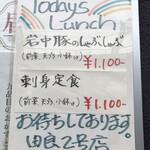 Todays
Lunch
岩中豚のしゃぶしゃぶ
(前菜 天ぷら 小鉢 付)
¥1.100-
刺身定食
(前菜 天ぷら 小鉢 付)
¥1.100-
お待ちしております。
由良2号店